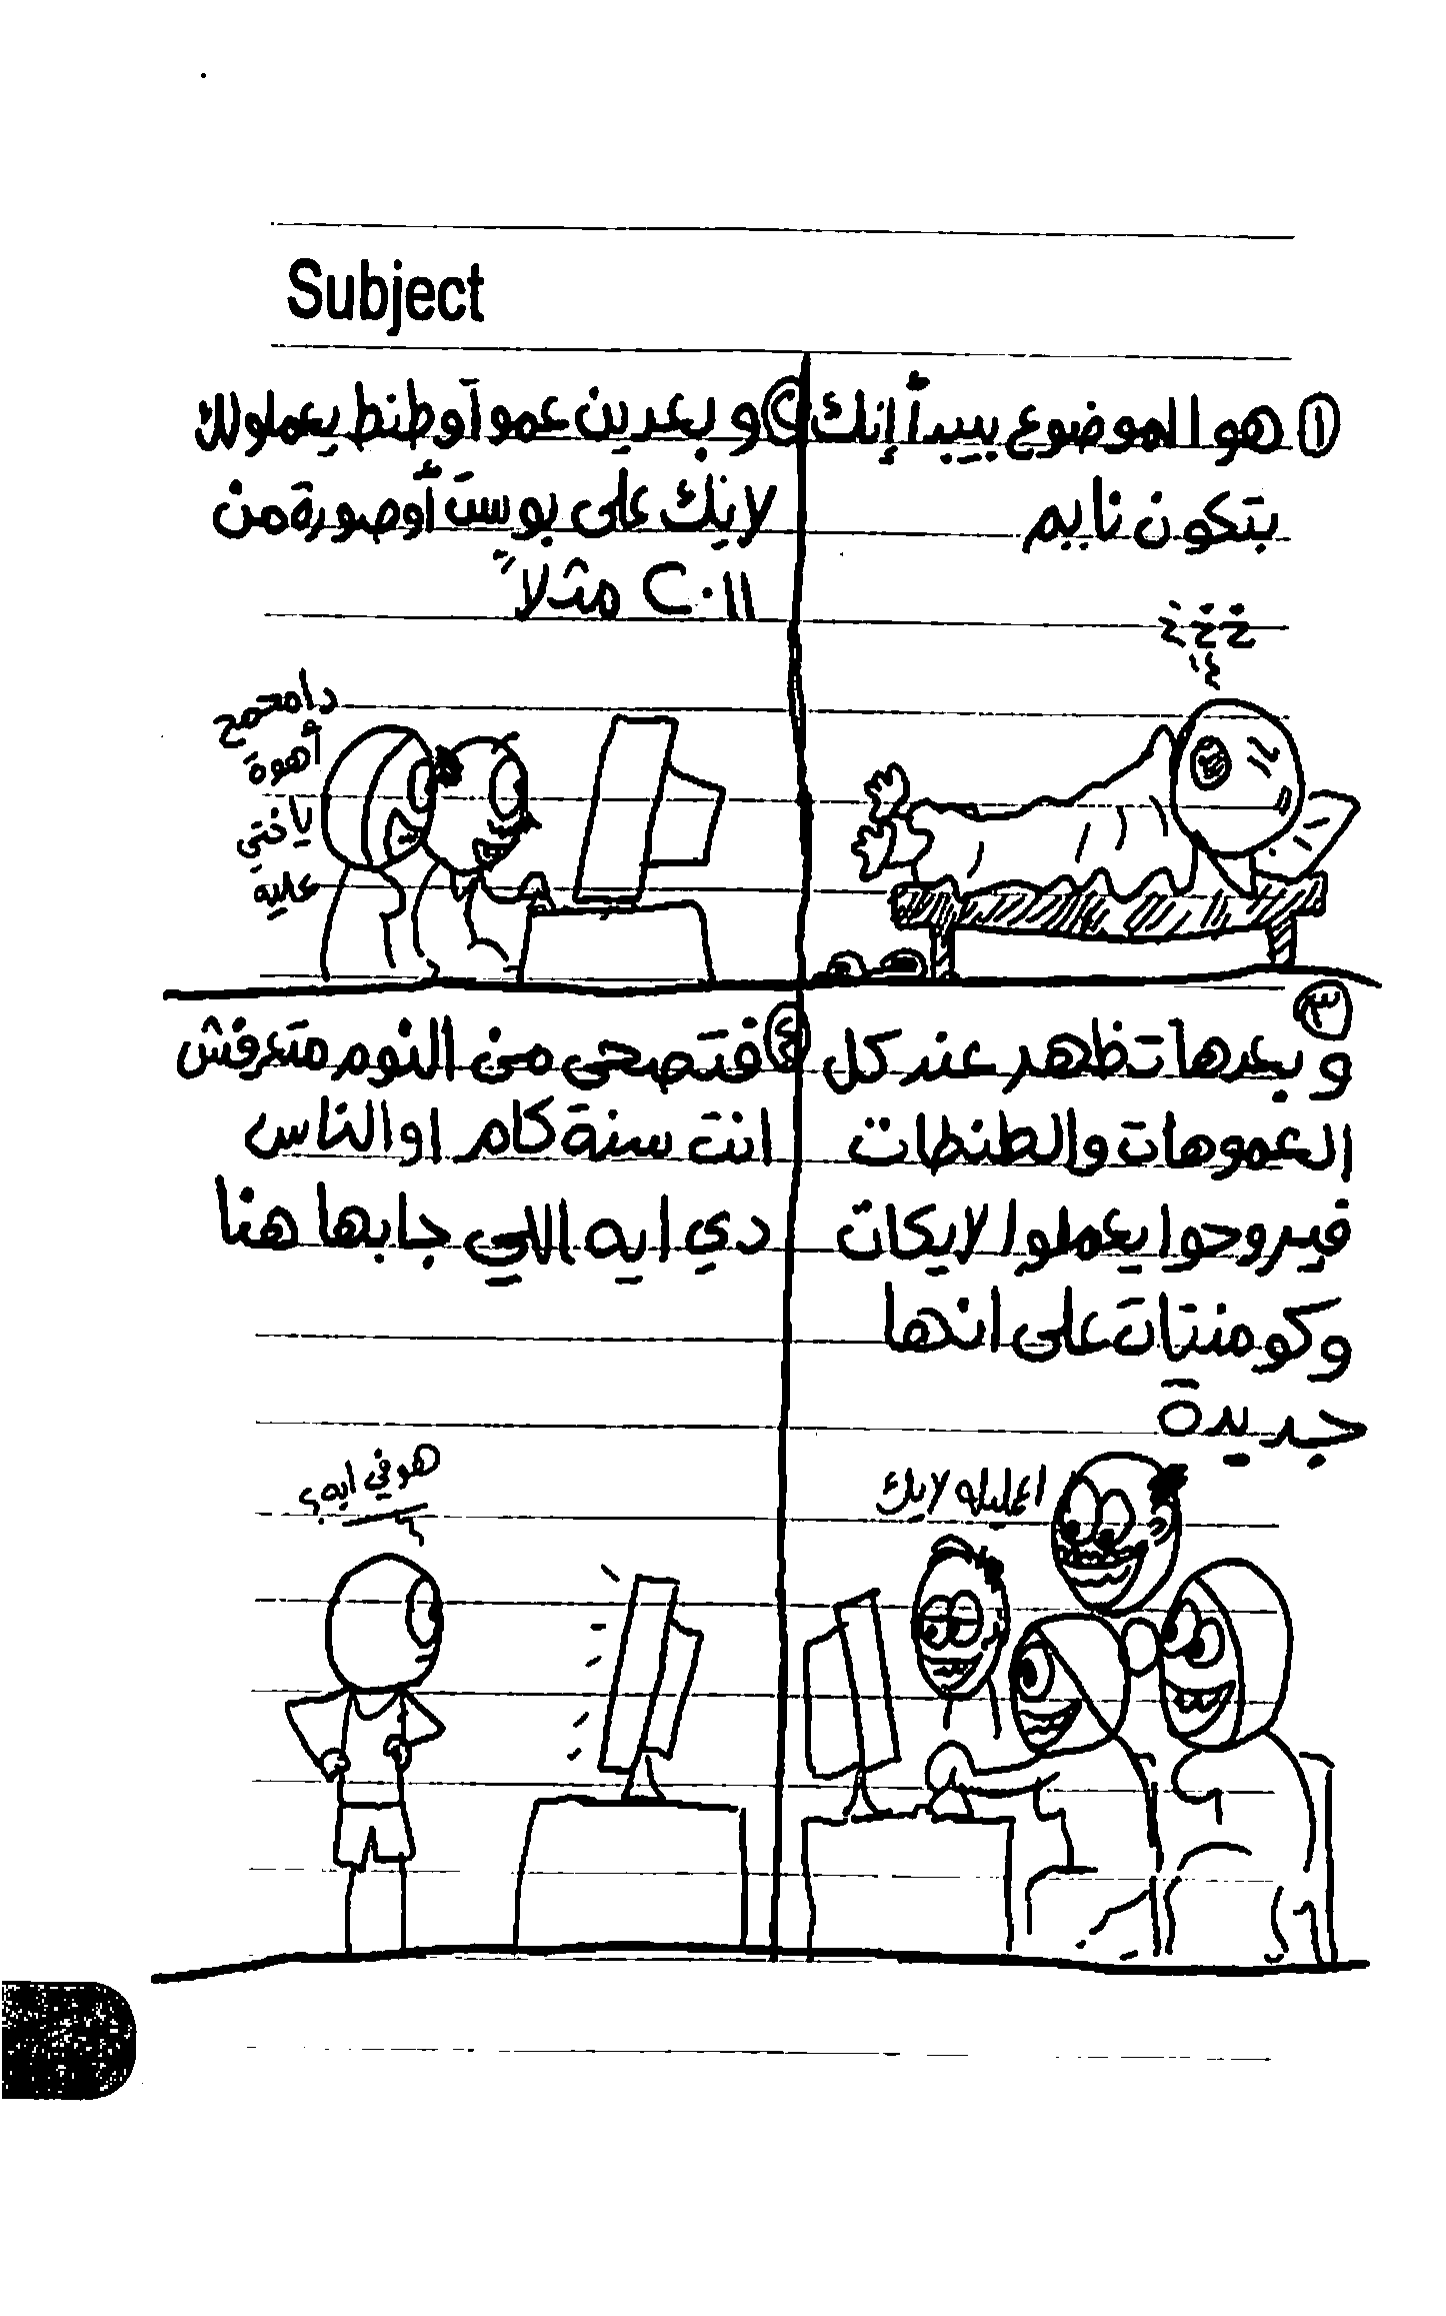 Subject
١ هو الموضوع بيبدأ إنك
بتكون نايم
خ خ خ
٢ و بعدين عمو أو طنط يعملولك
لايك على بوست أو صورة من
٢٠١١ مثلاً
دا محمح
أهوة
ياختي
عليه
٣
و بعدها تظهر عند كل
العموهات والطنطات
فيروحوا يعملوا لايكات
وكومنتات على انها
جديدة
اعمليله لايك
٤ فتصحى من النوم متعرفش
انت سنة كام او الناس
دي ايه اللي جابها هنا
هو في ايه؟